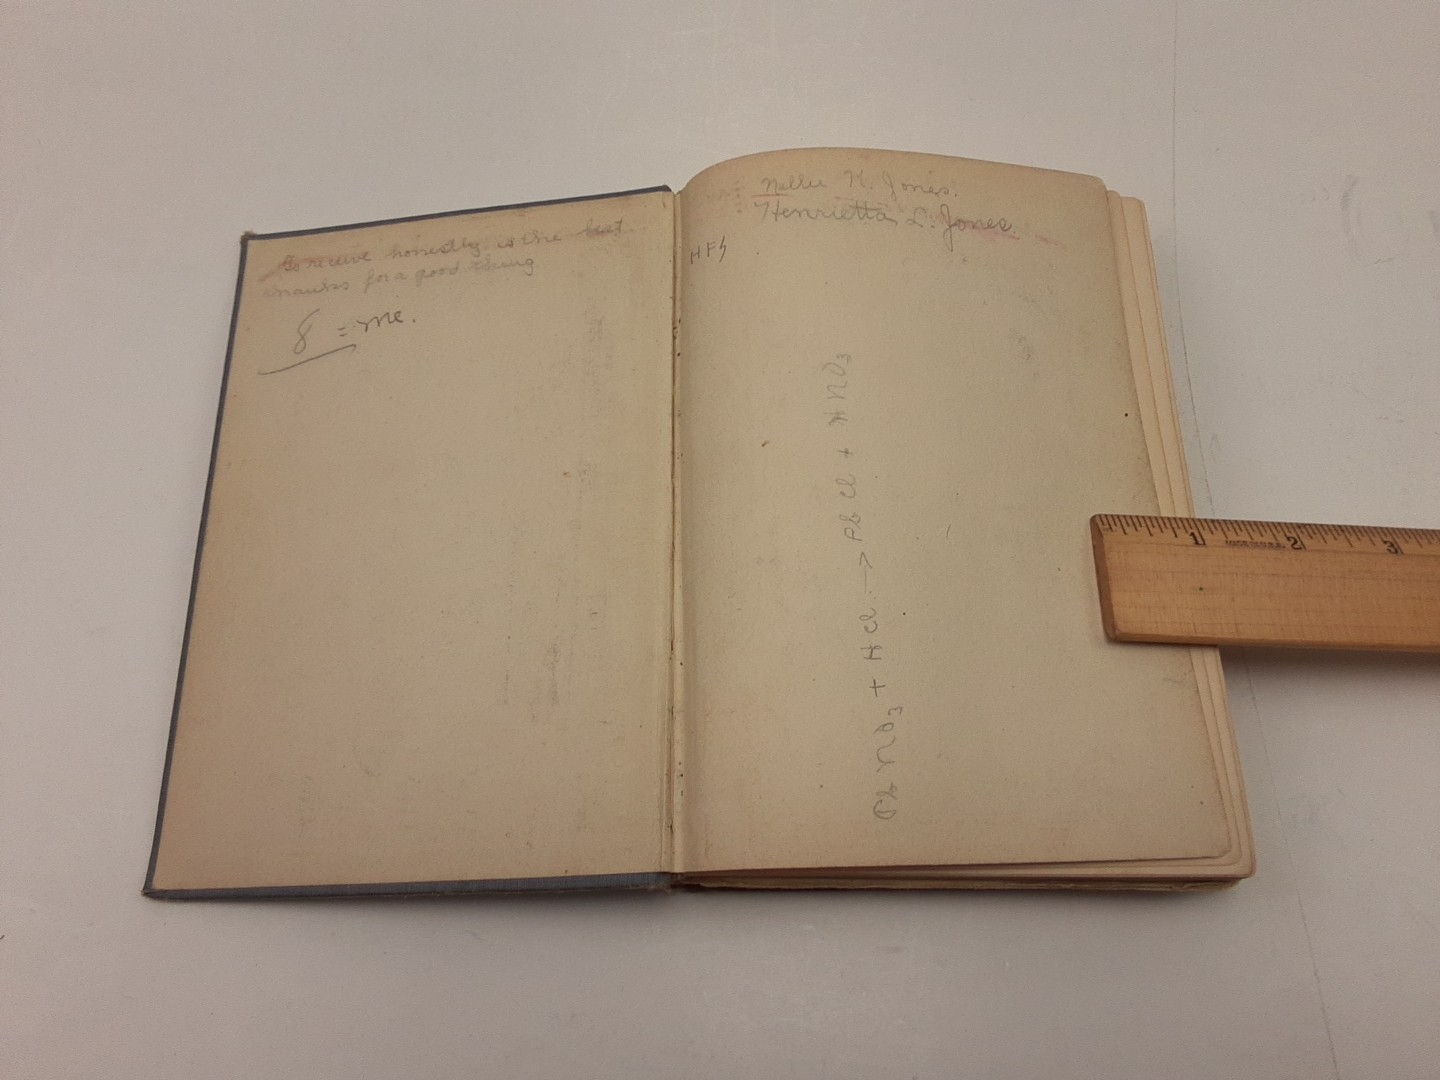 To receive honestly is the best
thanks for a good thing
8 = me.
Nellie K. Jones.
Henrietta L. Jones.
HFS
Pb NO3 + HCl → Pb Cl + HNO3
1 2 3